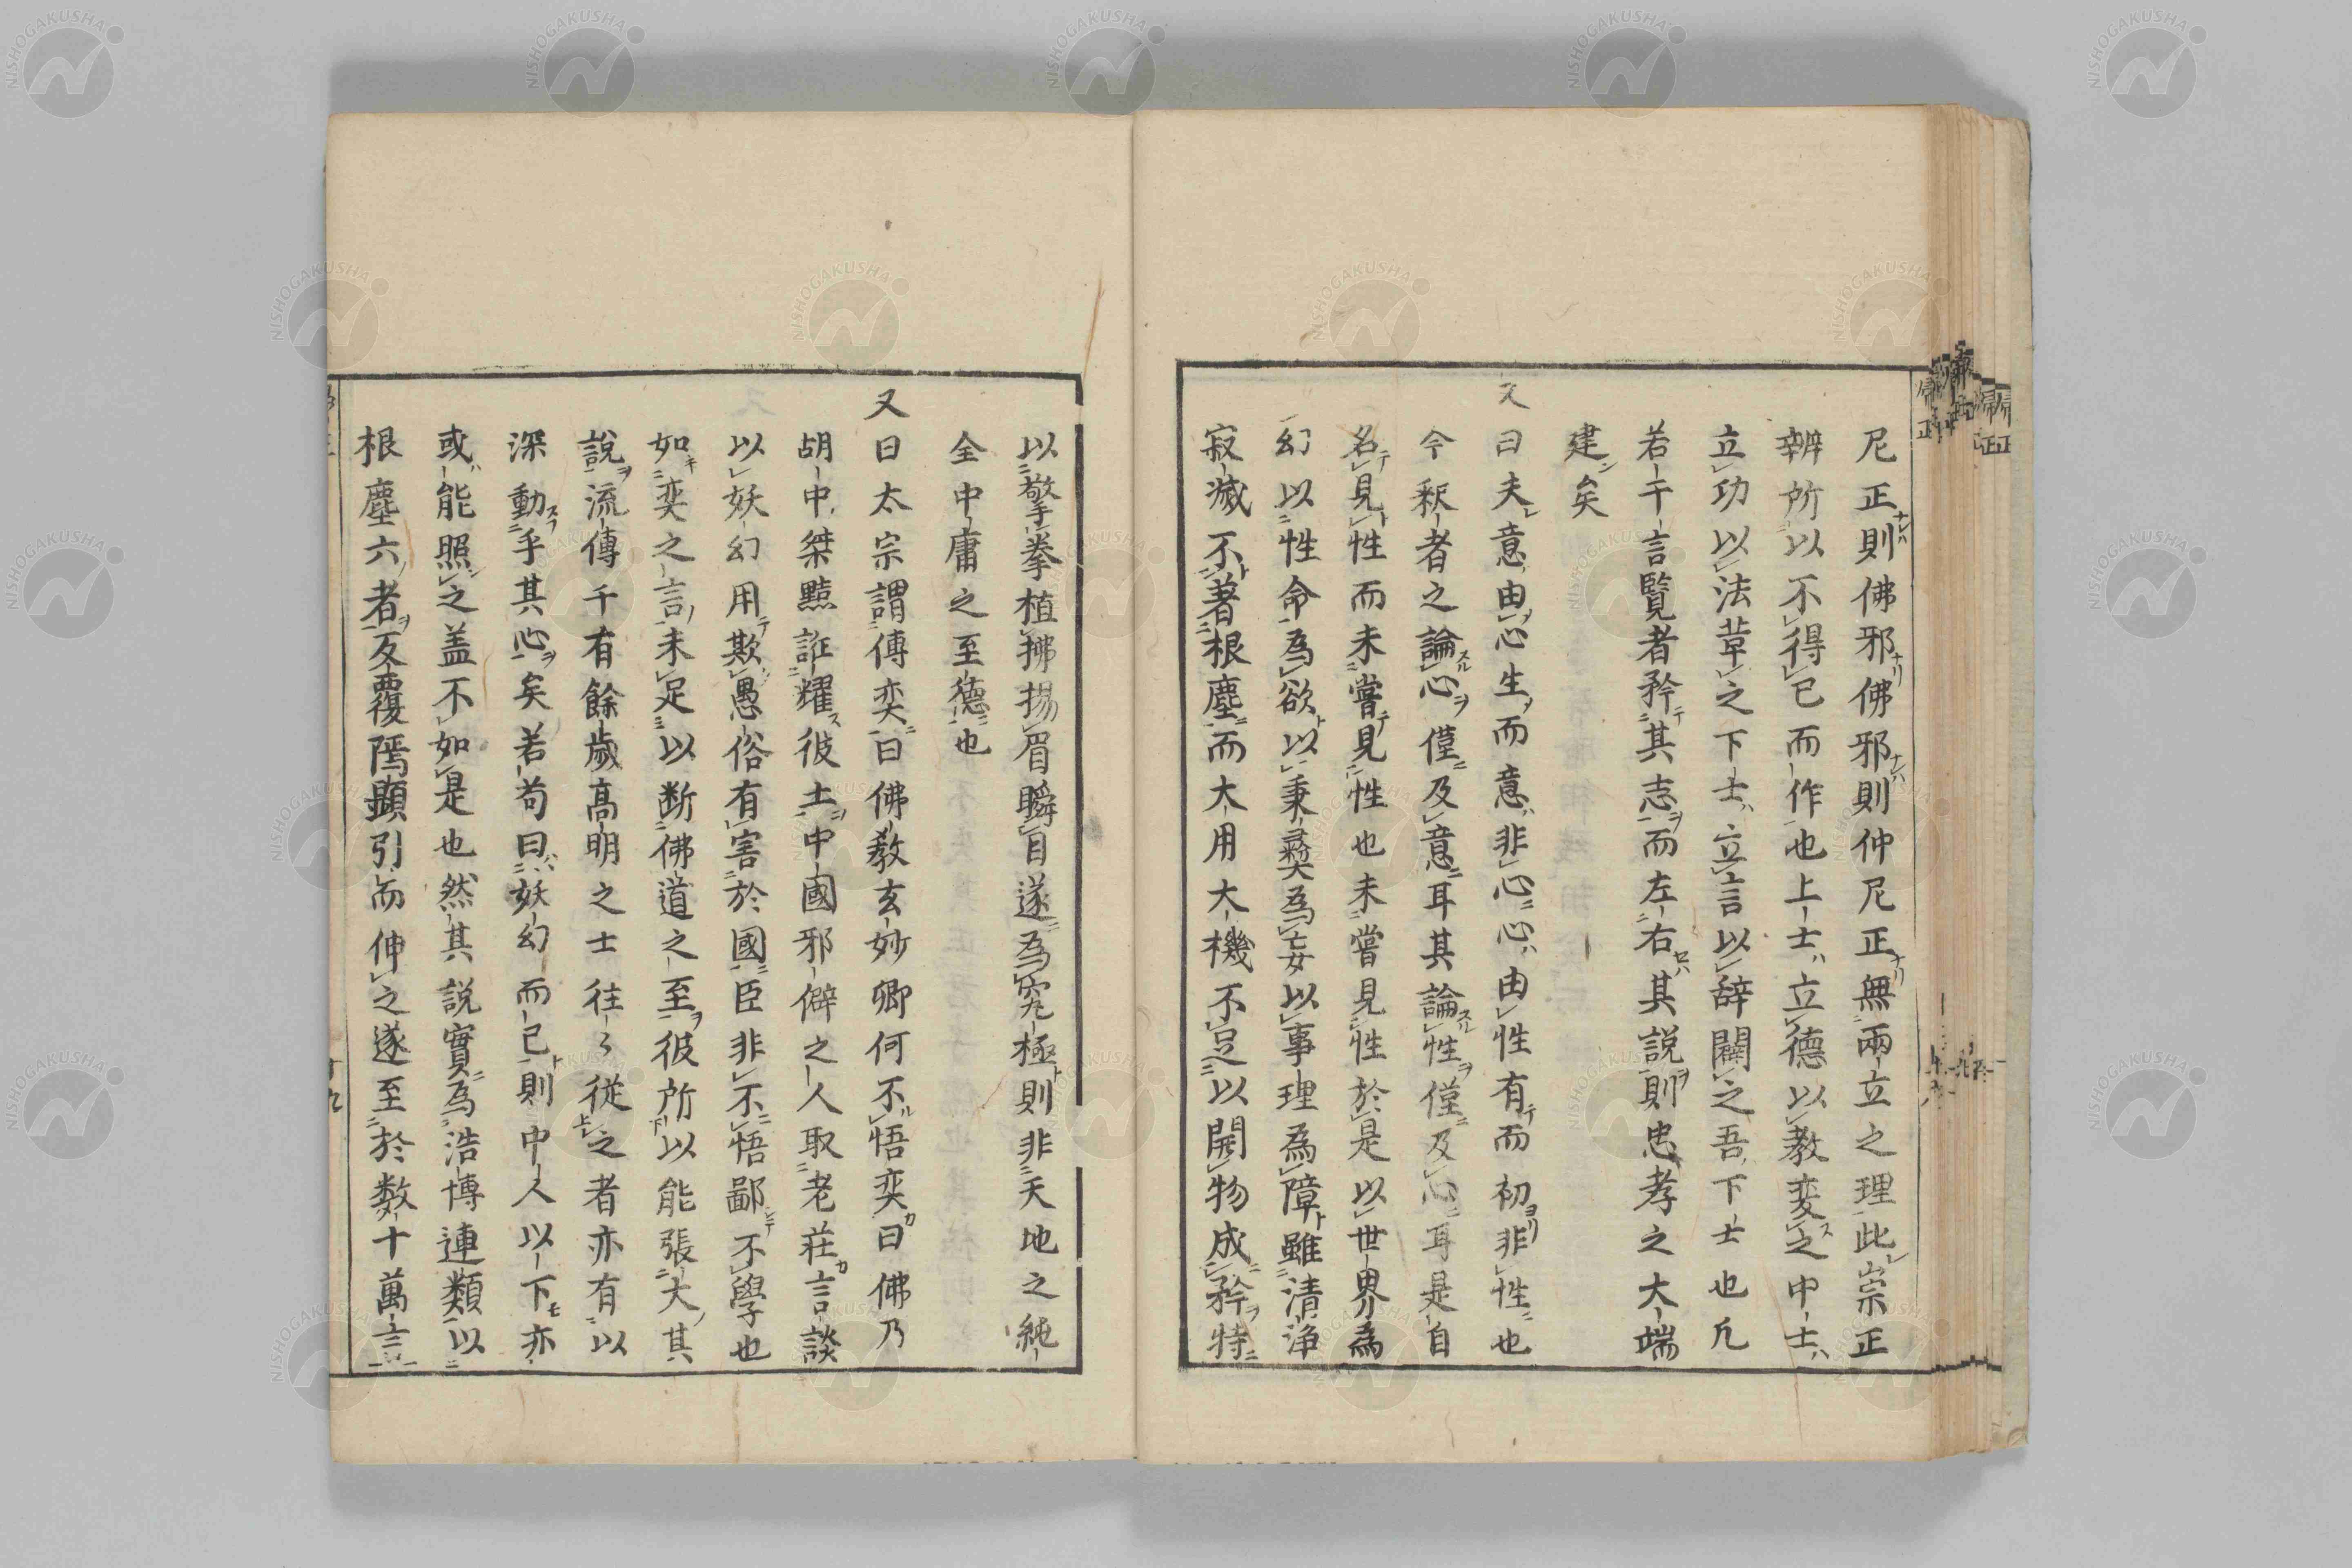 尼正則佛邪佛邪則仲尼正無兩立之理此崇正
辨所以不得已而作也上士立德以教変之中士
立功以法草之下士立言以辞闢之吾下士也凢
若干言覧者矜其志而左右其説則忠孝之大端
建矣
又曰夫意由心生而意非心心由性有而初非性也
今釈者之論心僅及意耳其論性僅及心耳是自
名見性而未嘗見性也未嘗見性於是以世界為
幻以性命為欲以秉彛為妄以事理為障雖清浄
寂滅不著根塵而大用大機不足以開物成矜特
以擎拳植拂揚眉瞬目遂為究極則非天地之純
全中庸之至德也
又曰太宗謂傅奕曰佛教玄妙卿何不悟奕曰佛乃
胡中桀黠誑耀彼土中國邪僻之人取老莊言談
以妖幻用欺愚俗有害於國臣非不悟鄙不學也
如奕之言未足以断佛道之至彼所以能張大其
説流傳千有餘歳髙明之士往々從之者亦有以
深動乎其心矣若苟曰妖幻而已則中人以下亦
或能照之盖不如是也然其説實為浩博連類以
根塵六者反覆隱顯引而伸之遂至於数十萬言